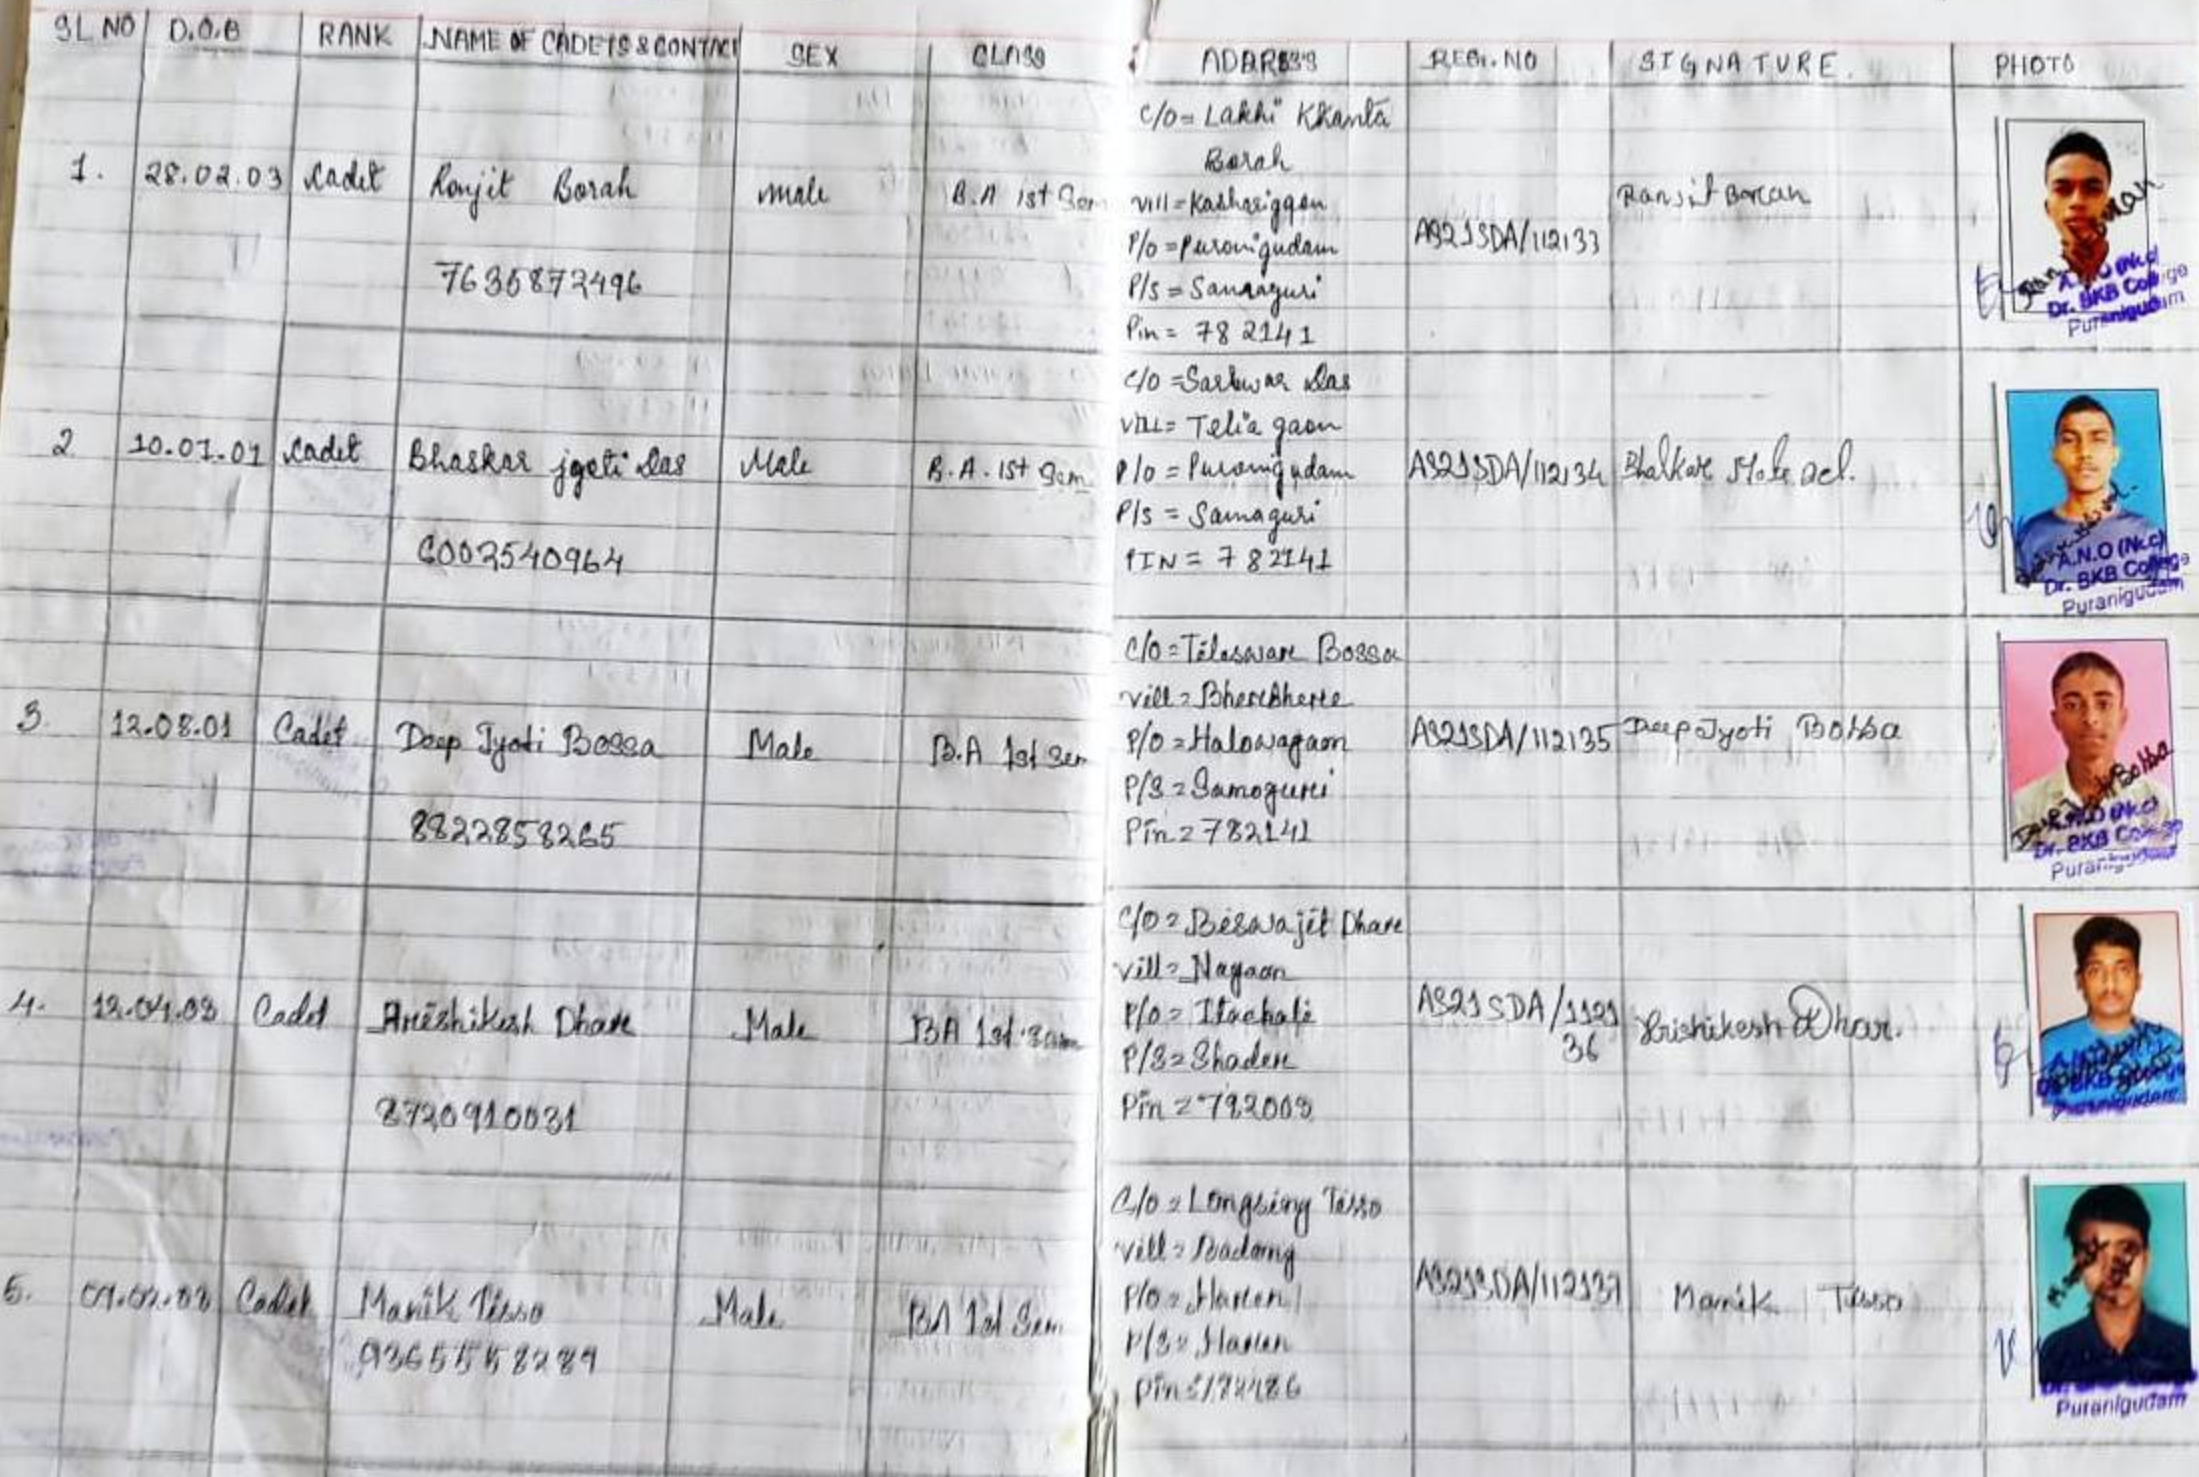 SL NO D.O.B RANK NAME OF CADETS & CONTACT SEX CLASS ADDRESS REGI.NO SIGNATURE. PHOTO
1. 28.02.03 Cadet Ronjit Borah male B.A 1st Sem
7635872496
C/O = Lakhi Kkanta
Borah
Vill = Kashariggon
P/O = Puronigudam
P/S = Samaguri
Pin = 782141
AS21SDA/112133
Ranjit Borah
A.N.O (N.c.c)
Dr. BKB College
Puranigudam
2 10.01.01 Cadet Bhaskar jyoti Das Male B.A. 1st Sem
6002540964
C/O = Sarbwar Das
VILL = Telia gaon
P/O = Puronigudam
P/S = Samaguri
PIN = 782141
AS21SDA/112134
A.N.O (N.c.c)
Dr. BKB College
Puranigudam
3. 12.08.01 Cadet Deep Jyoti Bossa Male B.A 1st Sem
8822858265
C/O = Tileswar Bossa
vill = Bherbheri
P/O = Halowagaon
P/S = Samoguri
Pin = 782141
AS21SDA/112135
Deep Jyoti Borba
A.N.O (N.c.c)
Dr. BKB College
Puranigudam
4. 12.04.03 Cadet Hrishikesh Dhar Male BA 1st Sem
8720910031
C/O = Biswajit Dhar
vill = Nagaon
P/O = Itachali
P/S = Shader
Pin = 782003
AS21SDA/1121
36
Hrishikesh Dhar.
Puranigudam
5. Cadet Manik Tisso Male BA 1st Sem
9365558289
C/O = Longsing Tisso
vill = Badong
P/O = Haren
P/S = Haren
Pin
AS21SDA/112137
Manik Tisso
Puranigudam